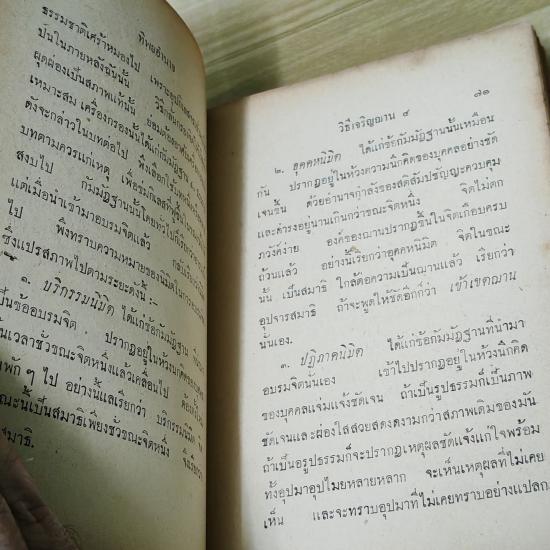 ทิพยอำนาจ
ธรรมชาติเศร้าหมองไป เพราะ
บันในภายหลังฉันนั้น วิธี
ผุดผ่องเป็นสภาพแท้นั้น ย่อม
เหมาะสม เครื่องกรองนั้นได้แก่กัมมัฏฐาน
ดังจะกล่าวในบทต่อไป พึงเลือกใช้
บทตามควรแก่เหตุ เพื่อข่มกิเลส
สงบไป กัมมัฏฐานนั้นโดย
แต่เมื่อนำเข้ามาอบรมจิตแล้ว
ไป พึงทราบความหมายของนิมิตในการ
ซึ่งแปรสภาพไปตามระยะดังนี้:-
๑. บริกรรมนิมิต ได้แก่ข้อกัมมัฏฐาน
เป็นข้ออบรมจิต ปรากฏอยู่ในห้วงนึกคิดของ
เวลาชั่วขณะจิตหนึ่งแล้วเคลื่อนไป
พัก ๆ ไป อย่างนี้แลเรียกว่า บริกรรมนิมิต
ขณะนี้เป็นสมาธิเพียงชั่วขณะจิตหนึ่ง
สมาธิ.
วิธีเจริญฌาน ๔ ๘๑
๒. อุคคหนิมิต ได้แก่ข้อกัมมัฏฐานนั้นเหมือน
กัน ปรากฏอยู่ในห้วงความนึกคิดของบุคคลอย่างชัด
เจนขึ้น ด้วยอำนาจกำลังของสติสัมปชัญญะควบคุม
และดำรงอยู่นานเกินกว่าขณะจิตหนึ่ง จิตไม่ตก
ภวังค์ง่าย องค์ของฌานปรากฏขึ้นในจิตเกือบครบ
ถ้วนแล้ว อย่างนี้เรียกว่าอุคคหนิมิต จิตในขณะ
นั้น เป็นสมาธิ ใกล้ต่อความเป็นฌานแล้ว เรียกว่า
อุปจารสมาธิ ถ้าจะพูดให้ชัดอีกก็ว่า เข้าเขตฌาน
นั้นเอง.
๓. ปฏิภาคนิมิต ได้แก่ข้อกัมมัฏฐานที่นำมา
อบรมจิตนั่นเอง เข้าไปปรากฏอยู่ในห้วงนึกคิด
ของบุคคลแจ่มแจ้งชัดเจน ถ้าเป็นรูปธรรมก็เป็นภาพ
ชัดเจนและผ่องใสสวยสดงดงามกว่าสภาพเดิมของมัน
ถ้าเป็นอรูปธรรมก็จะปรากฏเหตุผลชัดแจ้งแก่ใจพร้อม
ทั้งอุปมาอุปไมยหลายหลาก จะเห็นเหตุผลที่ไม่เคย
เห็น และจะทราบอุปมาที่ไม่เคยทราบอย่างแปลก